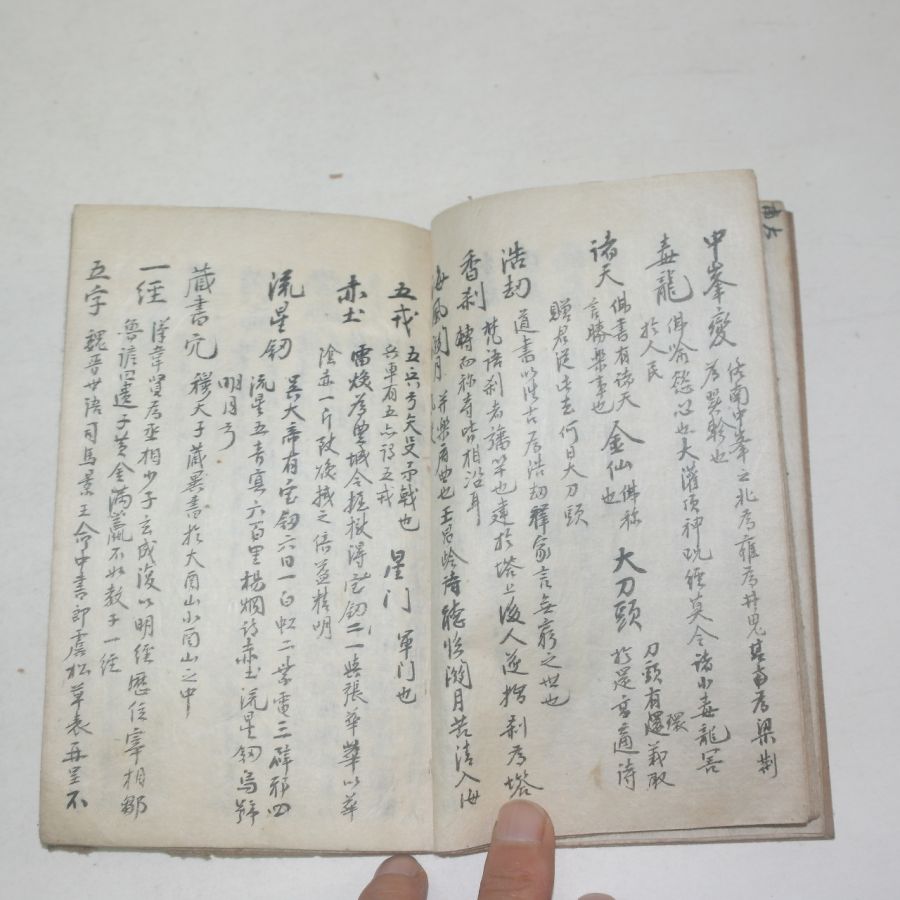 中峯變 終南中峯之北爲雍爲井鬼其南爲梁荆
爲翼軫也
毒龍 佛喩慾心也大灌頂神呪經莫令諸小毒龍害
於人民
諸天 佛書有諸天 金仙 佛称 大刀頭 刀頭有環義取
言勝樂事也 也 於還高適詩
贈君從此去何日大刀頭
浩劫 道書以浩古爲浩劫釋家言無窮之世也
梵語刹者旛竿也建於塔上後人遂指刹爲塔
香刹 轉而称寺皆相沿耳
海風関月 并樂府曲也王昌岭詩聽临関月苦清入海
五戎 五兵弓矢殳矛戟也 星门 軍门也
兵車有五亦謂五戎
赤土 雷煥爲豊城令掘獄淂宝釰二一與張華華以華
陰赤一斤致煥拭之倍益精明
流星釰 吳大帝有宝釰六曰一白虹二紫電三辟邪四
流星五青㝠六百里楊烱詩赤土流星釰烏號
明月弓
蔵書穴 穆天子蔵異書於大酉山小酉山之中
一經 漢韋賢爲丞相少子玄成復以明經歷位宰相鄒
魯諺曰遺子黃金满籯不如教子一經
五字 魏晋世語司馬景王命中書郎虞松草表再呈不